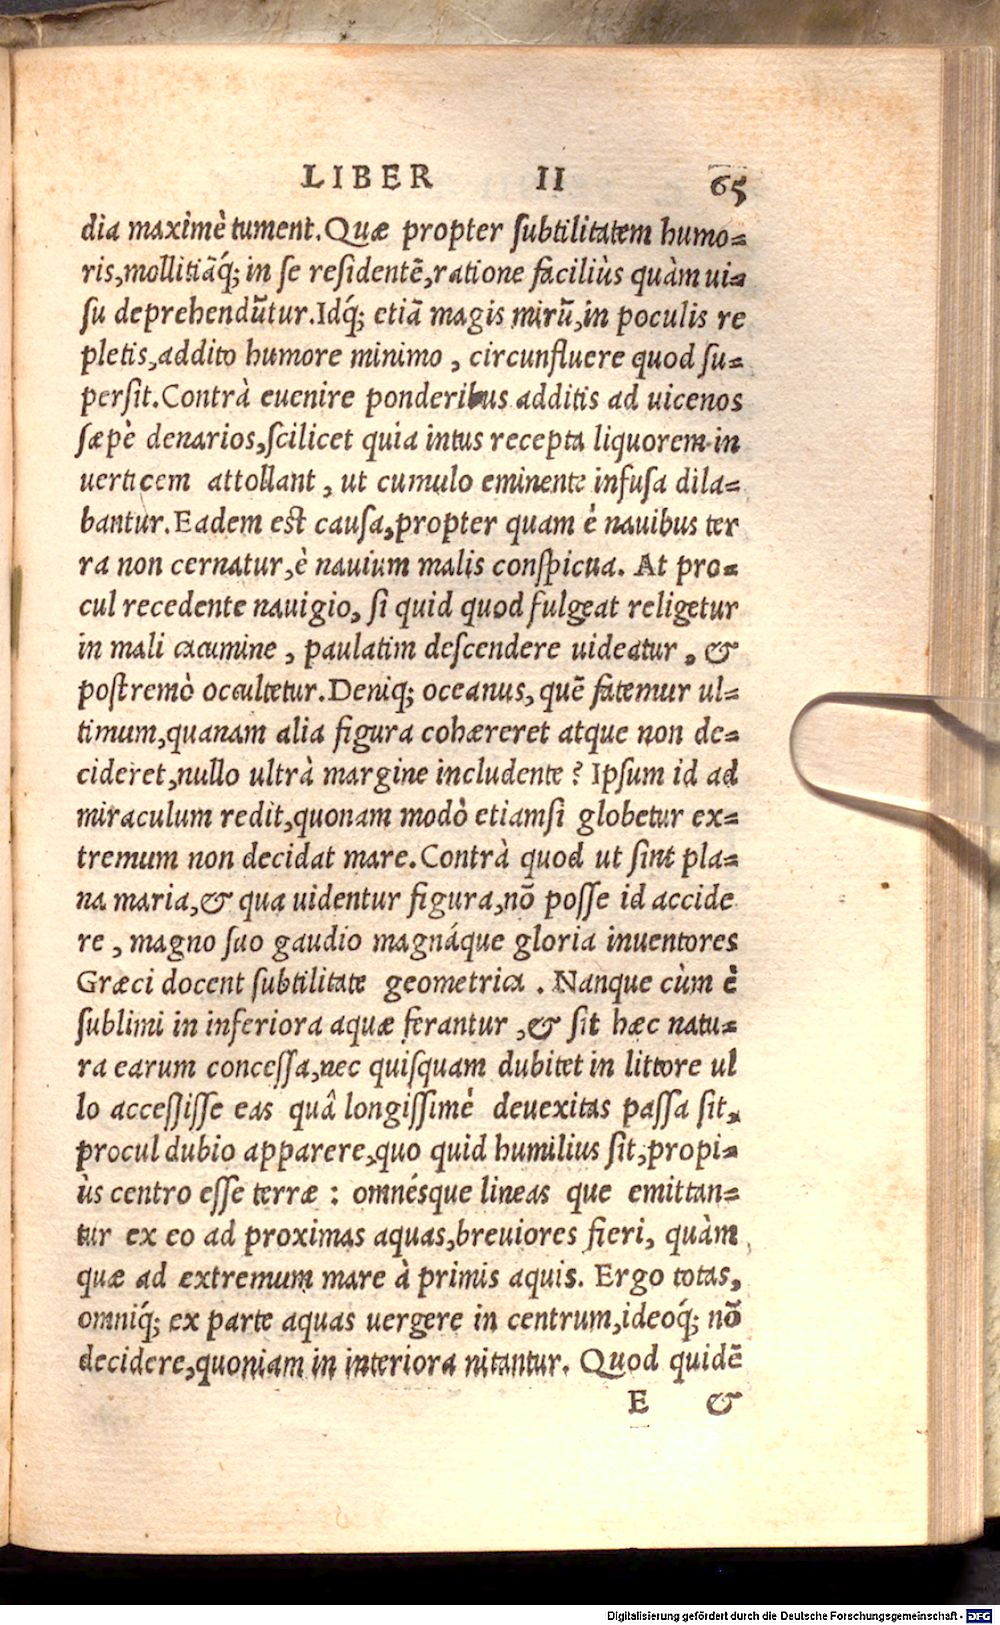 LIBER II 65
dia maximè tument. Quæ propter ſubtilitatem humo=
ris, mollitiāq́; in ſe reſidentē, ratione faciliùs quàm ui=
ſu deprehendūtur. Idq́; etiā magis mirū, in poculis re
pletis, addito humore minimo, circunfluere quod ſu=
perſit. Contrà euenire ponderibus additis ad uicenos
ſæpè denarios, ſcilicet quia intus recepta liquorem in
uerticem attollant, ut cumulo eminente infuſa dila=
bantur. Eadem eſt cauſa, propter quam è nauibus ter
ra non cernatur, è nauium malis conſpicua. At pro=
cul recedente nauigio, ſi quid quod fulgeat religetur
in mali cacumine, paulatim deſcendere uideatur, &
poſtremò occultetur. Deniq; oceanus, quē fatemur ul=
timum, quanam alia figura cohæreret atque non de=
cideret, nullo ultrà margine includente? Ipſum id ad
miraculum redit, quonam modò etiamſi globetur ex=
tremum non decidat mare. Contrà quod ut ſint pla=
na maria, & qua uidentur figura, nō poſſe id accide
re, magno ſuo gaudio magnáque gloria inuentores
Græci docent ſubtilitate geometrica. Nanque cùm è
ſublimi in inferiora aquæ ferantur, & ſit hæc natu=
ra earum conceſſa, nec quiſquam dubitet in littore ul
lo acceſſiſſe eas quâ longiſſimè deuexitas paſſa ſit,
procul dubio apparere, quo quid humilius ſit, propi=
ùs centro eſſe terræ: omnésque lineas que emittan=
tur ex eo ad proximas aquas, breuiores fieri, quàm
quæ ad extremum mare à primis aquis. Ergo totas,
omniq́; ex parte aquas uergere in centrum, ideoq́; nō
decidere, quoniam in interiora nitantur. Quod quidē
E &
Digitalisierung gefördert durch die Deutsche Forschungsgemeinschaft - DFG